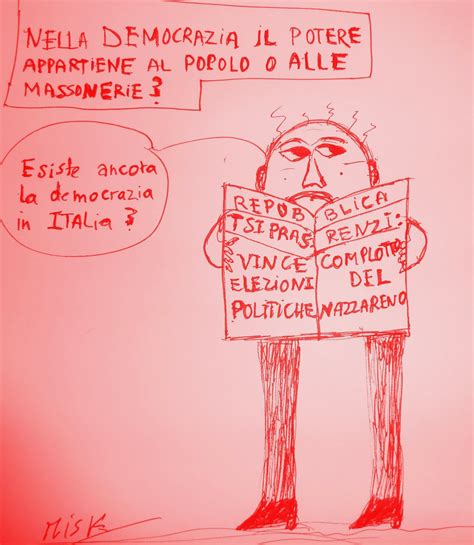 NELLA DEMOCRAZIA IL POTERE
APPARTIENE AL POPOLO O ALLE
MASSONERIE?
Esiste ancora
la democrazia
in ITALIA?
REPUBBLICA
TSIPRAS
VINCE
ELEZIONI
POLITICHE
RENZI:
COMPLOTTO
DEL
NAZZARENO
Misk